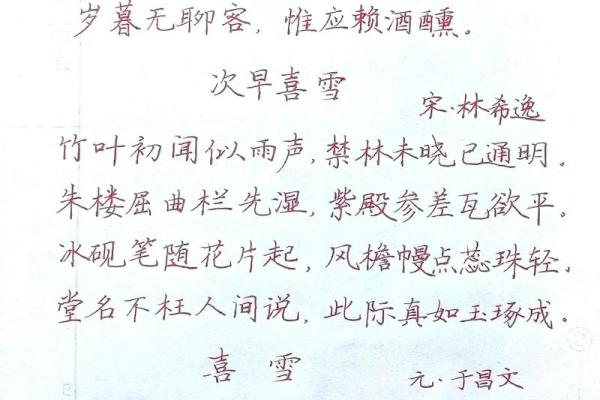 岁暮无聊客，惟应赖酒醺。
次早喜雪
宋·林希逸
竹叶初闻似雨声，禁林未晓已通明。
朱楼屈曲栏先湿，紫殿参差瓦欲平。
冰砚笔随花片起，风檐幔点蕊珠轻。
堂名不枉人间说，此际真如玉琢成。
喜雪
元·于昌文